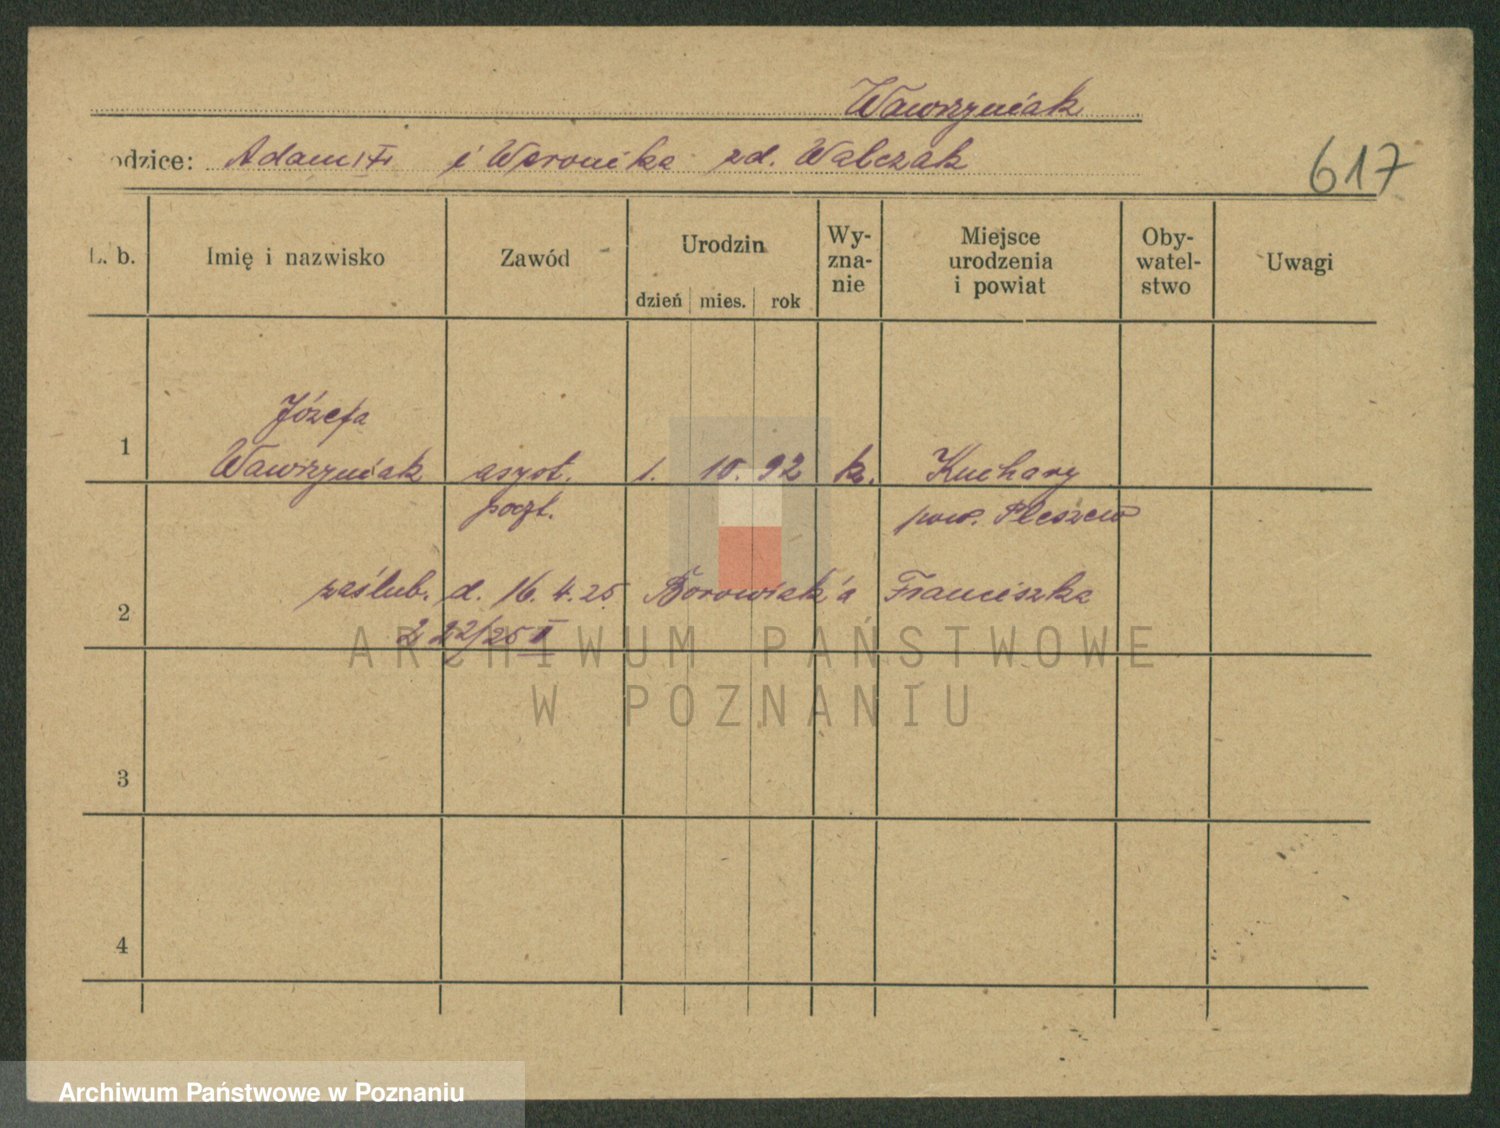 Wawrzyniak
odzice: Adam i Weronika zd. Walczak
617
L. b. Imię i nazwisko Zawód Urodzin dzień mies. rok Wy-zna-nie Miejsce urodzenia i powiat Oby-watel-stwo Uwagi
Józefa
1 Wawrzyniak asyst. 1. 10. 92 k. Kuchary
poczt. pow. Pleszew
2 zaślub. d. 16. 4. 25 Borowiak'a Franciszka
22/25 II
ARCHIWUM PAŃSTWOWE
W POZNANIU
3
4
Archiwum Państwowe w Poznaniu